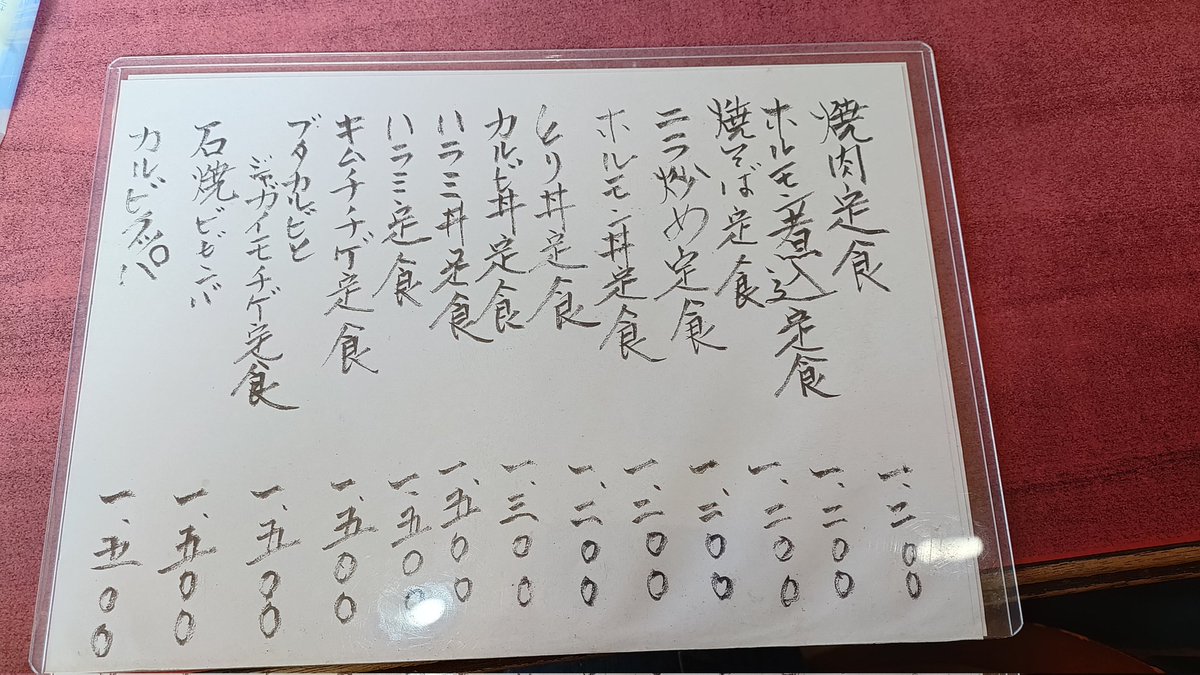 焼肉定食
ホルモン煮込定食
焼そば定食
ニラ炒め定食
ホルモン丼定食
とり丼定食
カルビ丼定食
ハラミ丼定食
ハラミ定食
キムチチゲ定食
ブタカルビと
ジャガイモチゲ定食
石焼ビビンバ
カルビクッパ
一、二〇〇
一、二〇〇
一、二〇〇
一、二〇〇
一、二〇〇
一、二〇〇
一、三〇〇
一、五〇〇
一、五〇〇
一、五〇〇
一、五〇〇
一、五〇〇
一、五〇〇